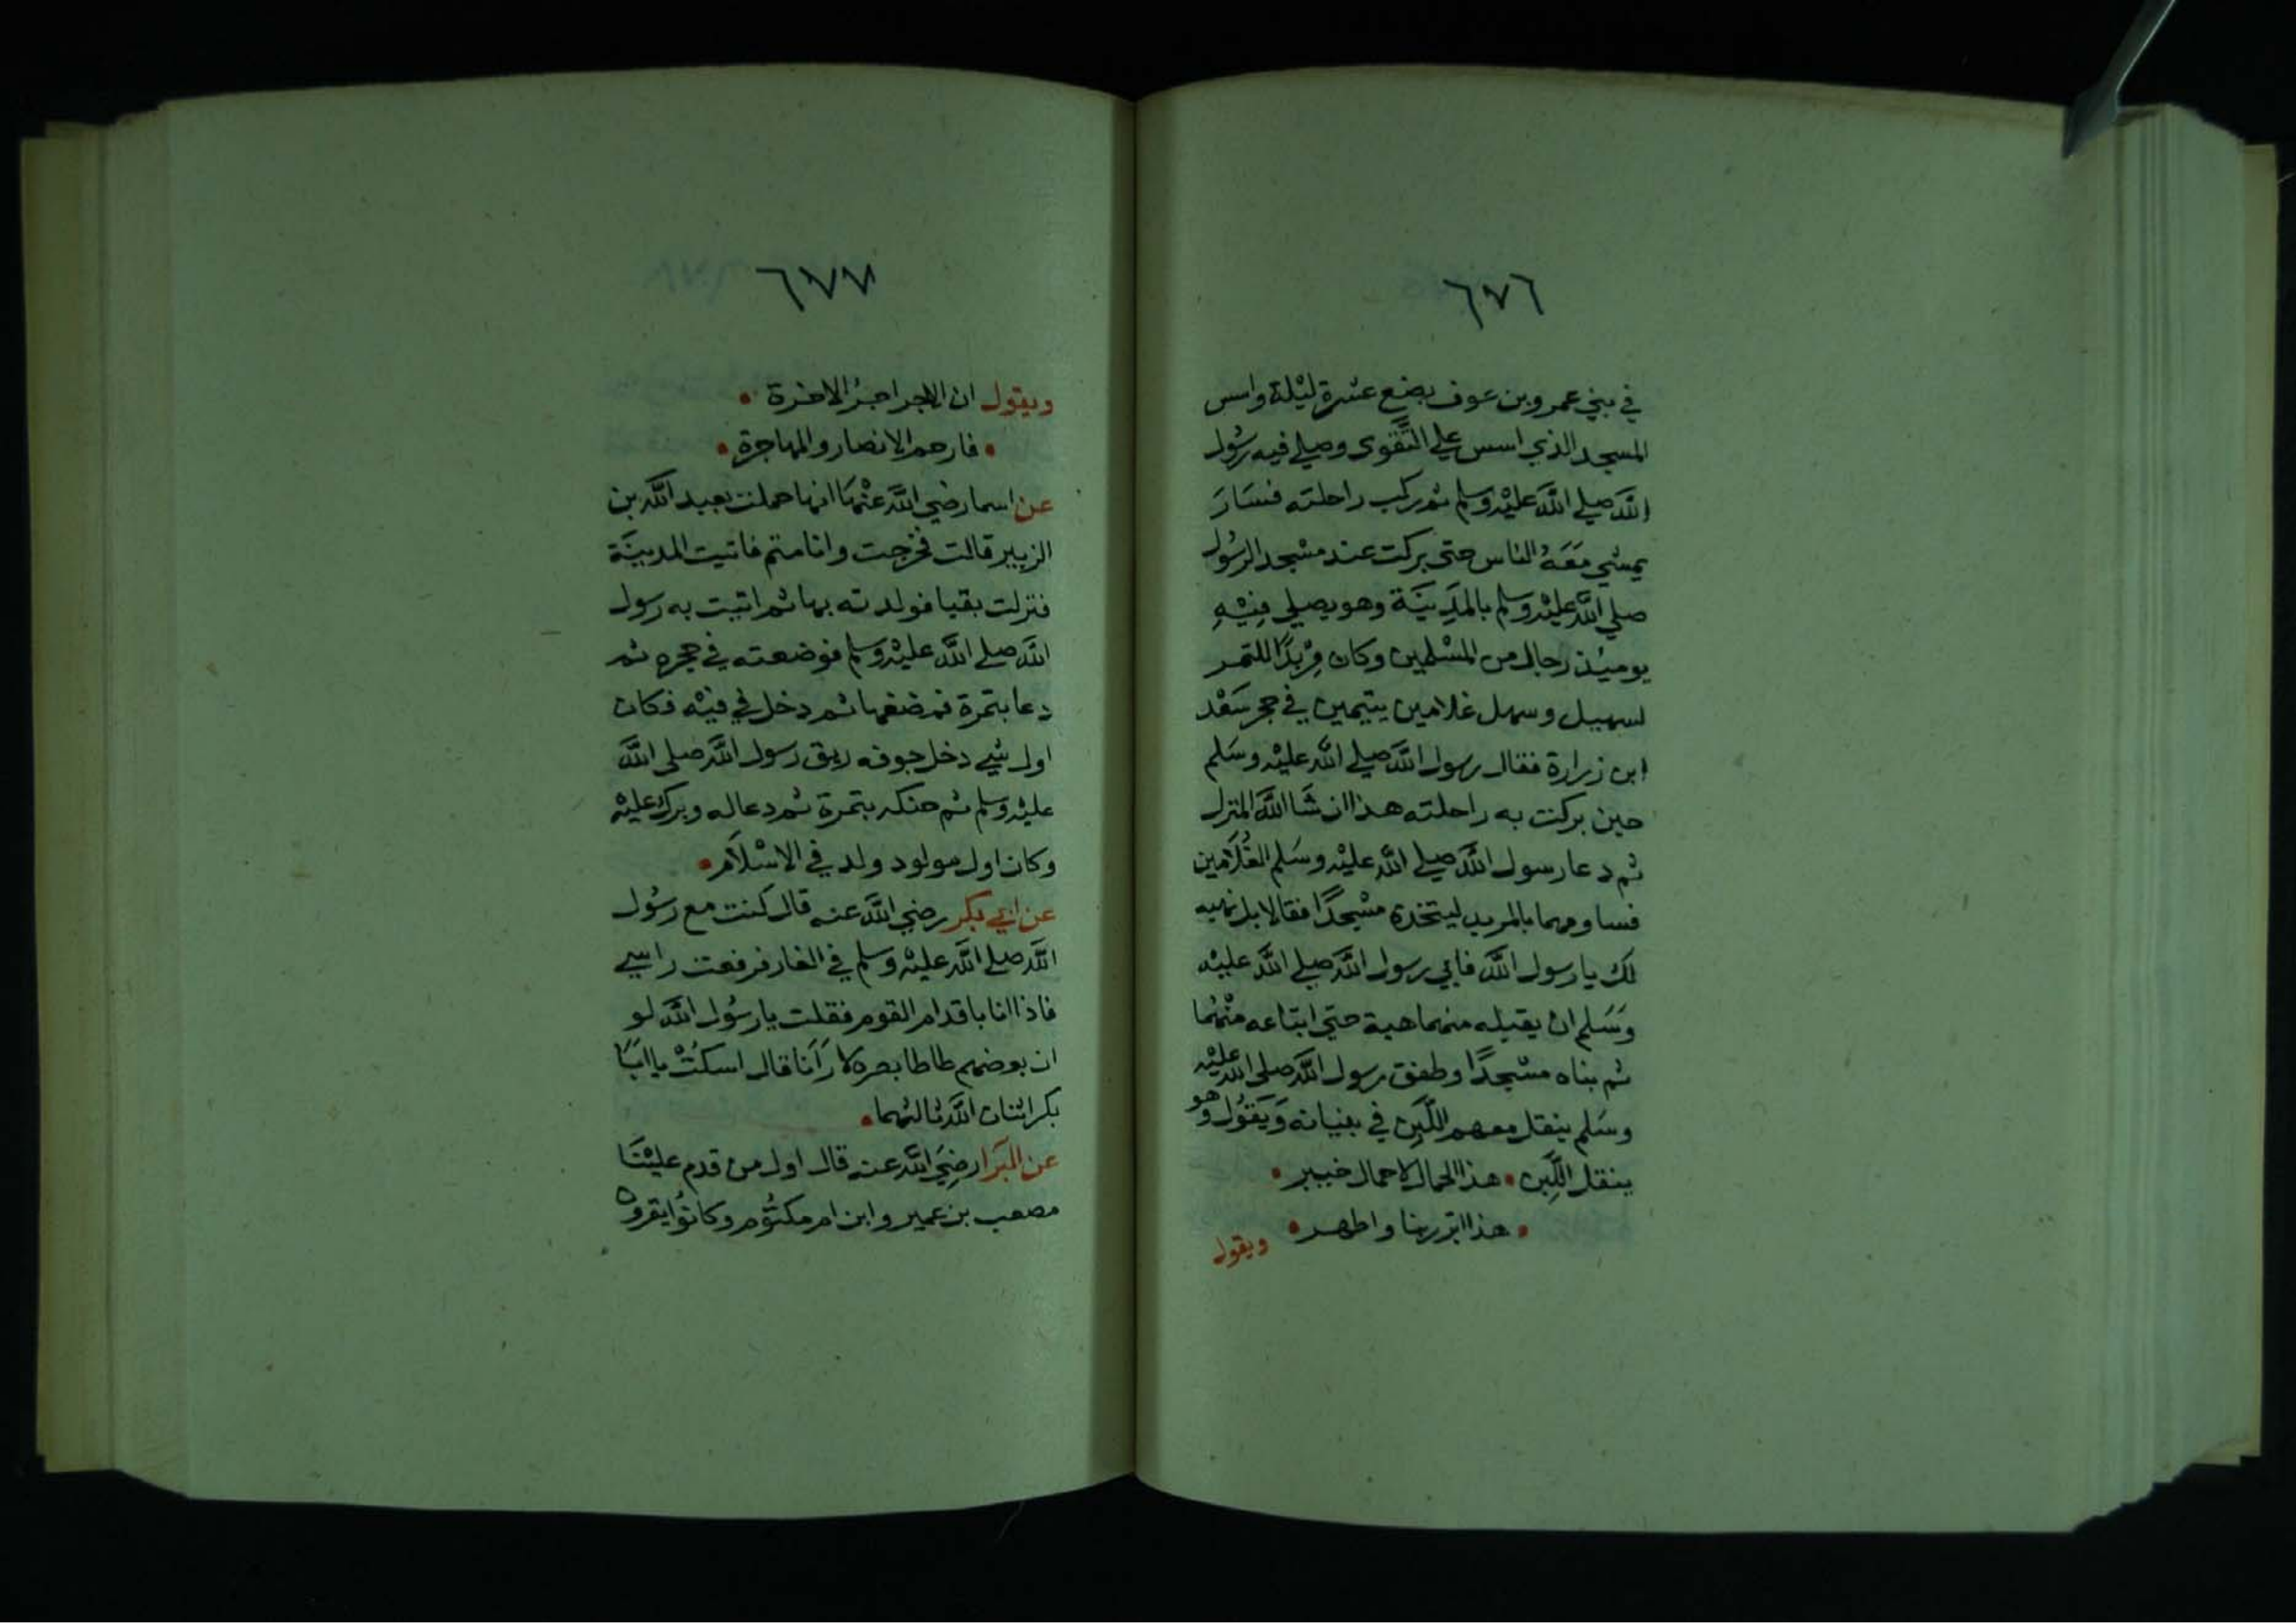 ٦٧٦
في بني عمرو بن عوف بضع عشرة ليلة واسس
المسجد الذي اسس علي التَّقوى وصلي فيه رسُول
اللَّه صلي اللَّه عليْه وسلم ثم ركب راحلته فسَارَ
يمشي مَعَهُ الناس حتى بركت عند مسْجد الرسُول
صلي اللَّه عليْه وسلم بالمَدِينَة وهو يصلي فِيْهِ
يوميْذ رجال من المسْلمين وكان مِرْبدًا للتمر
لسهيل وسهل غلامين يتيمين في حجر سَعْد
ابن زرارة فقال رسول اللَّه صلي اللَّه عليْه وسَلم
حين بركت به راحلته هذا ان شَا اللَّه المنزل
ثم دعا رسول اللَّه صلي اللَّه عليْه وسَلم الغُلَامين
فساومهما بالمربد ليتخذه مسْجدًا فقالا بل نهبه
لك يا رسول اللَّه فابي رسول اللَّه صلي اللَّه عليْه
وسَلم ان يقبله منهما هبة حتي ابتاعه منْهُما
ثم بناه مسْجدًا وطفق رسول اللَّه صلى اللَّه عليْه
وسَلم ينقل معهم اللَّبِن في بنيانه وَيَقوُل وهو
ينقل اللَّبِن • هذا الحمال لا حمال خيبر •
• هذا ابر ربنا واطهر •
ويقول
٦٧٧
ويقول ان الاجر اجرُ الاخرة •
• فارحم الانصار والمهاجرة •
عن اسما رضي اللَّه عنْهَا انها حملت بعبد اللَّه بن
الزبير قالت فخرجت وانا متم فاتيت المدينَة
فنزلت بقبا فولدته بها ثم اتيت به رسول
اللَّه صلي اللَّه عليْه وسلم فوضعته في حجره ثم
دعا بتمرة فمضغها ثم دخل في فيْه فكان
اول شي دخل جوفه ريق رسول اللَّه صلى اللَّه
عليْه وسلم ثم حنكه بتمرة ثم دعا له وبرك عليْه
وكان اول مولود ولد في الاسْلَام •
عن ابي بكر رضي اللَّه عنه قال كنت مع رسُول
اللَّه صلي اللَّه عليْه وسلم في الغار فرفعت راسي
فاذا انا باقدام القوم فقلت يا رسُول اللَّه لو
ان بعضهم طاطا بصره لا رَآنا قال اسكتْ يا ابَا
بكر اثنان اللَّه ثالثهما •
عن البَرَا رضِيَ اللَّه عنه قال اول من قدم عليْنَا
مصعب بن عمير وابن ام مكتُوم وكانوُا يقرون